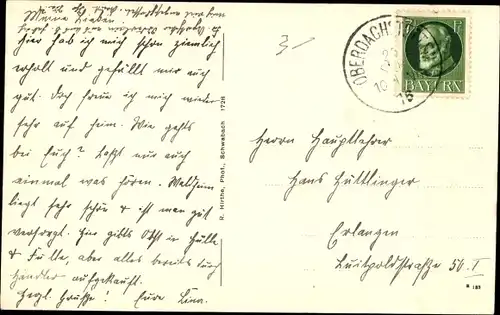 Meine Lieben!
hier hab ich mich schon ziemlich
erholt und gefällt mir auch
gut. Doch freue ich mich wieder
sehr auf heim. Wie gehts
bei Euch? Laßt nur auch
einmal was hören. Waldheim
liegt sehr schön & ist man gut
versorgt. Hier gibts Obst in Hülle
& Fülle, aber alles bereits durch
Händler aufgekauft.
Herzl. Grüße! Eure Lina.
R. Hirthe, Phot., Schwabach 1726
3/-
OBERDACHSTETTEN
BAYERN
Herrn Hauptlehrer
Hans Hüttlinger
Erlangen
Luitpoldstraße 56.I